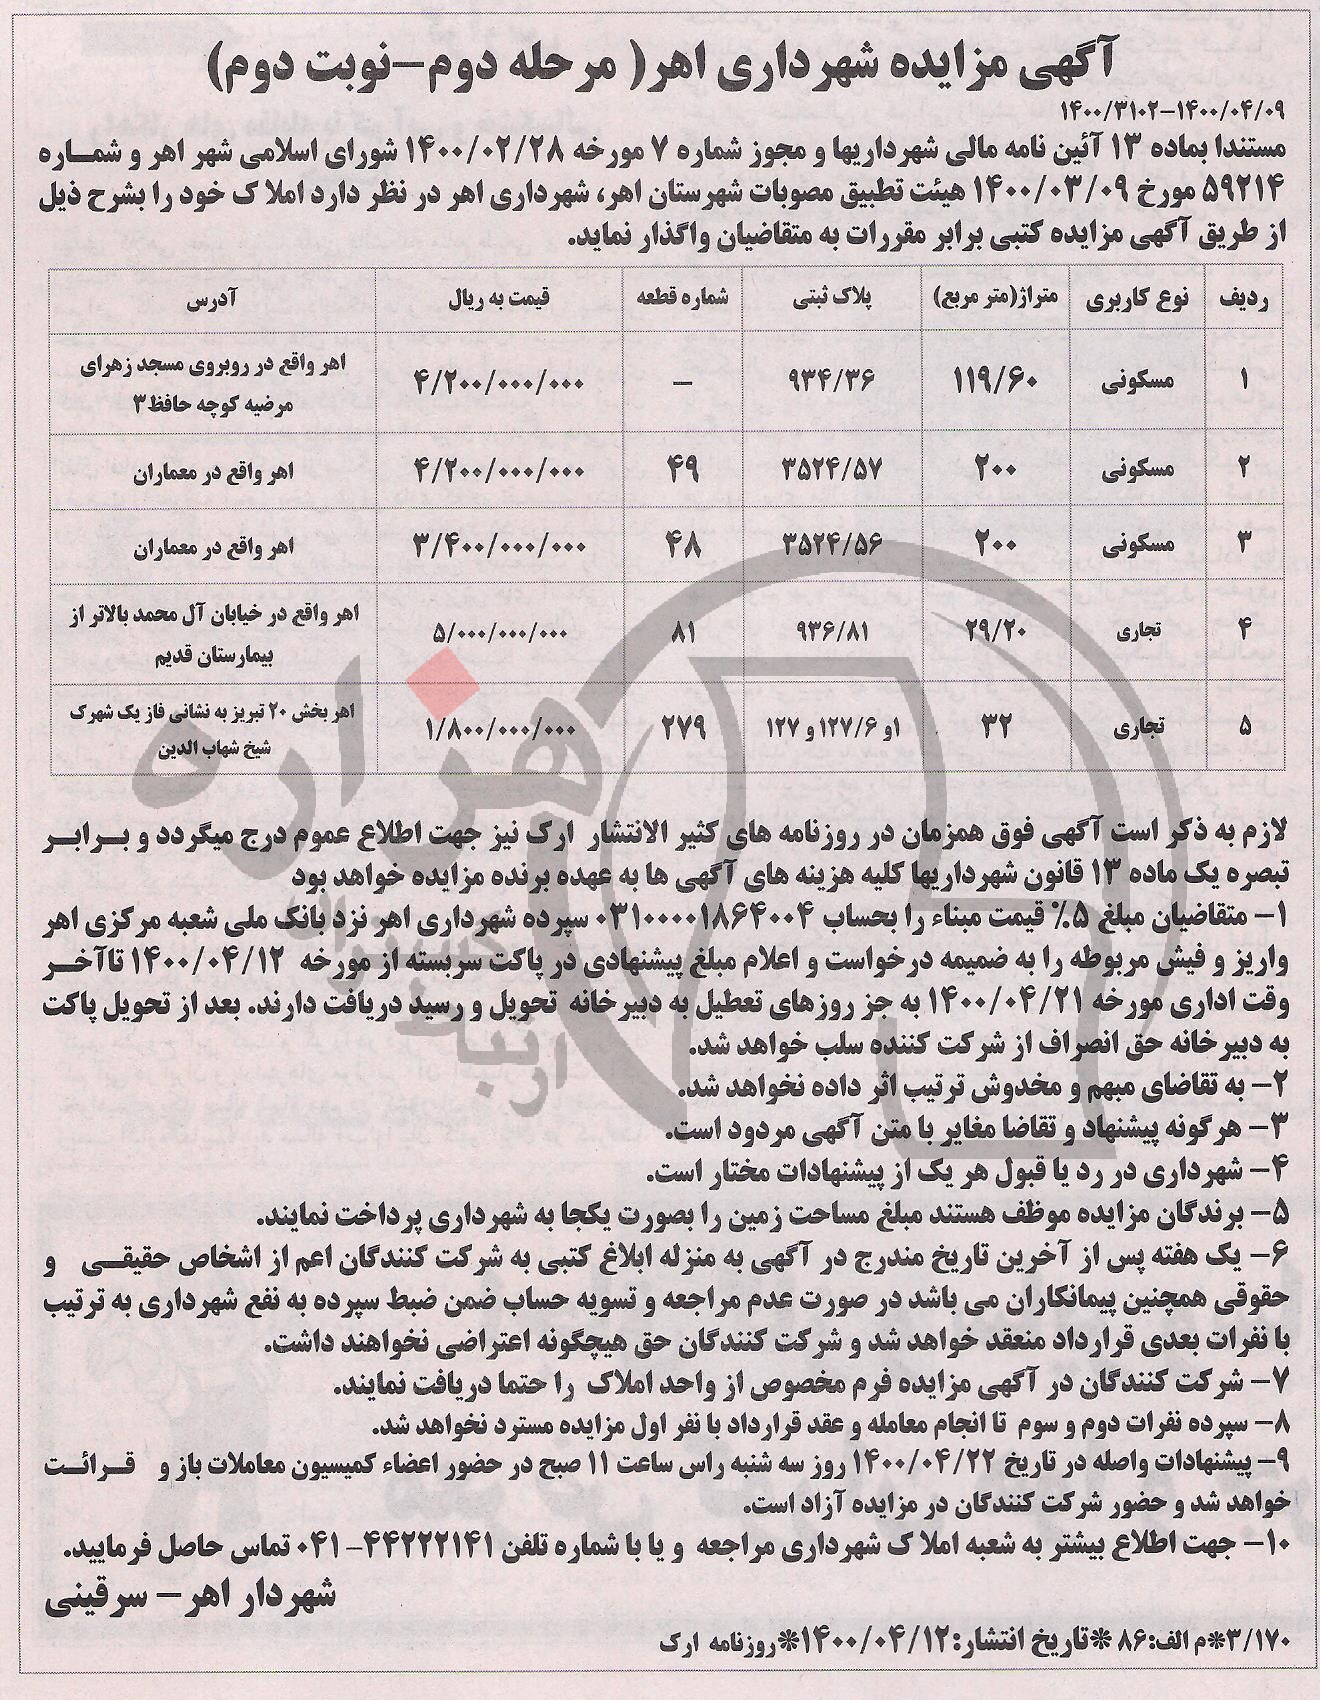 آگهی مزایده شهرداری اهر( مرحله دوم-نوبت دوم)
۱۴۰۰/۳۱۰۲-۱۴۰۰/۰۴/۰۹
مستندا بماده ۱۳ آئین نامه مالی شهرداریها و مجوز شماره ۷ مورخه ۱۴۰۰/۰۲/۲۸ شورای اسلامی شهر اهر و شماره
۵۹۲۱۴ مورخ ۱۴۰۰/۰۳/۰۹ هیئت تطبیق مصوبات شهرستان اهر، شهرداری اهر در نظر دارد املاک خود را بشرح ذیل
از طریق آگهی مزایده کتبی برابر مقررات به متقاضیان واگذار نماید.
ردیف نوع کاربری متراژ(متر مربع) پلاک ثبتی شماره قطعه قیمت به ریال آدرس
۱ مسکونی ۱۱۹/۶۰ ۹۳۴/۳۶ – ۴/۲۰۰/۰۰۰/۰۰۰ اهر واقع در روبروی مسجد زهرای
مرضیه کوچه حافظ۳
۲ مسکونی ۲۰۰ ۳۵۲۴/۵۷ ۴۹ ۴/۲۰۰/۰۰۰/۰۰۰ اهر واقع در معماران
۳ مسکونی ۲۰۰ ۳۵۲۴/۵۶ ۴۸ ۳/۴۰۰/۰۰۰/۰۰۰ اهر واقع در معماران
۴ تجاری ۲۹/۲۰ ۹۳۶/۸۱ ۸۱ ۵/۰۰۰/۰۰۰/۰۰۰ اهر واقع در خیابان آل محمد بالاتر از
بیمارستان قدیم
۵ تجاری ۳۲ ۱و ۱۲۷/۶ و ۱۲۷ ۲۷۹ ۱/۸۰۰/۰۰۰/۰۰۰ اهر بخش ۲۰ تبریز به نشانی فاز یک شهرک
شیخ شهاب الدین
لازم به ذکر است آگهی فوق همزمان در روزنامه های کثیر الانتشار ارک نیز جهت اطلاع عموم درج میگردد و برابر
تبصره یک ماده ۱۳ قانون شهرداریها کلیه هزینه های آگهی ها به عهده برنده مزایده خواهد بود
۱- متقاضیان مبلغ ۵٪ قیمت مبناء را بحساب ۰۳۱۰۰۰۰۱۸۶۴۰۰۴ سپرده شهرداری اهر نزد بانک ملی شعبه مرکزی اهر
واریز و فیش مربوطه را به ضمیمه درخواست و اعلام مبلغ پیشنهادی در پاکت سربسته از مورخه ۱۴۰۰/۰۴/۱۲ تاآخر
وقت اداری مورخه ۱۴۰۰/۰۴/۲۱ به جز روزهای تعطیل به دبیرخانه تحویل و رسید دریافت دارند. بعد از تحویل پاکت
به دبیرخانه حق انصراف از شرکت کننده سلب خواهد شد.
۲- به تقاضای مبهم و مخدوش ترتیب اثر داده نخواهد شد.
۳- هرگونه پیشنهاد و تقاضا مغایر با متن آگهی مردود است.
۴- شهرداری در رد یا قبول هر یک از پیشنهادات مختار است.
۵- برندگان مزایده موظف هستند مبلغ مساحت زمین را بصورت یکجا به شهرداری پرداخت نمایند.
۶- یک هفته پس از آخرین تاریخ مندرج در آگهی به منزله ابلاغ کتبی به شرکت کنندگان اعم از اشخاص حقیقی و
حقوقی همچنین پیمانکاران می باشد در صورت عدم مراجعه و تسویه حساب ضمن ضبط سپرده به نفع شهرداری به ترتیب
با نفرات بعدی قرارداد منعقد خواهد شد و شرکت کنندگان حق هیچگونه اعتراضی نخواهند داشت.
۷- شرکت کنندگان در آگهی مزایده فرم مخصوص از واحد املاک را حتما دریافت نمایند.
۸- سپرده نفرات دوم و سوم تا انجام معامله و عقد قرارداد با نفر اول مزایده مسترد نخواهد شد.
۹- پیشنهادات واصله در تاریخ ۱۴۰۰/۰۴/۲۲ روز سه شنبه راس ساعت ۱۱ صبح در حضور اعضاء کمیسیون معاملات باز و قرائت
خواهد شد و حضور شرکت کنندگان در مزایده آزاد است.
۱۰- جهت اطلاع بیشتر به شعبه املاک شهرداری مراجعه و یا با شماره تلفن ۴۴۲۲۲۱۴۱-۰۴۱ تماس حاصل فرمایید.
شهردار اهر- سرقینی
۳/۱۷۰*م الف:۸۶*تاریخ انتشار:۱۴۰۰/۰۴/۱۲*روزنامه ارک
هزاره